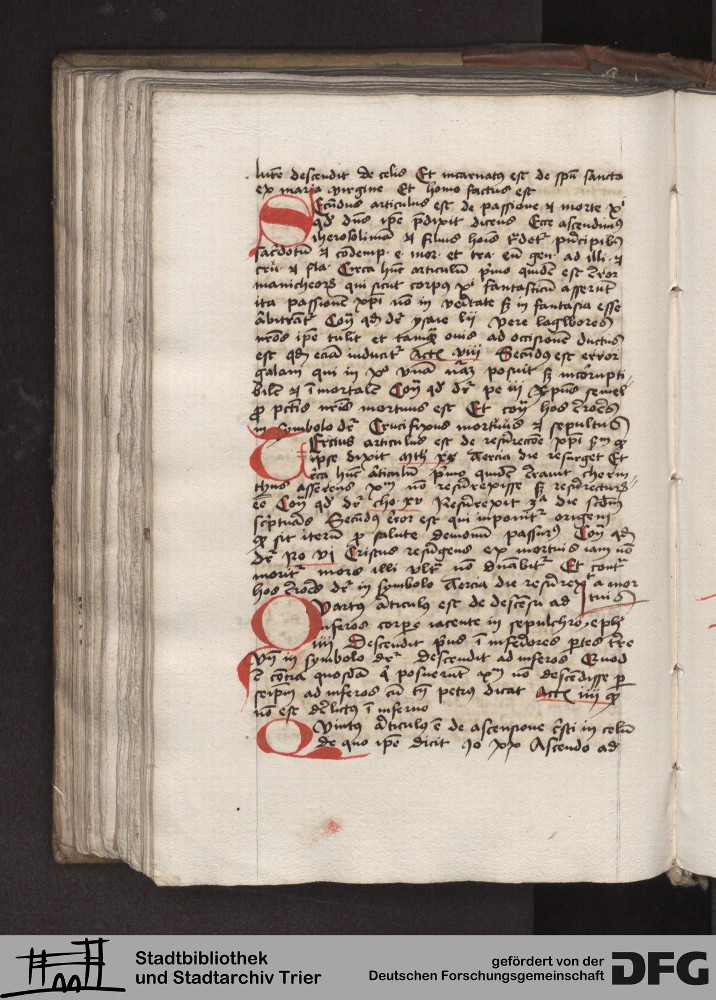 lute descendit de celis Et incarnatus est de spu sancto
ex maria virgine Et homo factus est
Secundus articulus est de passione et morte xi
qd dns ipe pdixit dicens Ecce ascendimus
iherosolimam et filius hois tdet pncipibus
sacdotum et codemp e mor et tra eu gen ad illi et
cru et fla Circa huc articulu pmo quidem est error
manicheors qui sicut corpus xi fantasticu asserut
ita passionem xpi no in veritate sz in fantasia esse
abitrant Con qd dr ysaie lii vere lagwores
nros ipe tulit et tamq ovis ad occisionem ductus
est qd eciam inducit Act viii Secudus est error
galani qui in xo una naz posuit sz incorrupti
bilem et imortalem Con qd dr pe iii xpus semel
p pctis nris mortuus est Et con hos errores
in symbolo dr Crucifixus mortuus et sepultus
Tercius articulus est de resurrectoe xpi sm q
ipse dixit Mth xx Tercia die resurget Et
circa huc articulum pmo quidem erravit cherin
thus asserens xm no resurrexisse sz resurecturu
eo Con qd dr cho xv Resurrexit 3a die scdm
scripturas Secundus error est qui inponit origeni
q sit iterum p salute demonum passurus Con qd
dr Ro vi Cristus resurgens ex mortuis iam no
morit mors illi ultra no dnabit Et contra
hos errores dr in symbolo Tercia die resurrexit a mor
tuis
Quartus articulus est de descensu ad
inferos corpe iacente in sepulchro eph
iiii Descendit pus i inferiores ptes tre
Vn in symbolo dr Descendit ad inferos Quod
e contra quosdam q posuerunt xm no descendisse p
seipm ad inferos cu tn petrus dicat Act iiii q
no est derelictus i inferno
Quintus articulus e de ascensione cristi in celum
de quo ipe dicit Io xx Ascendo ad
Stadtbibliothek
und Stadtarchiv Trier
gefördert von der
Deutschen Forschungsgemeinschaft DFG